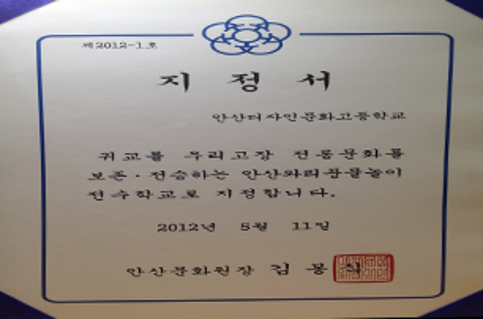 제2012-1호
지 정 서
안산디자인문화고등학교
귀교를 우리고장 전통문화를
보존·전승하는 안산와리풍물놀이
전수학교로 지정합니다.
2012년 5월 11일
안산문화원장 김 봉 식